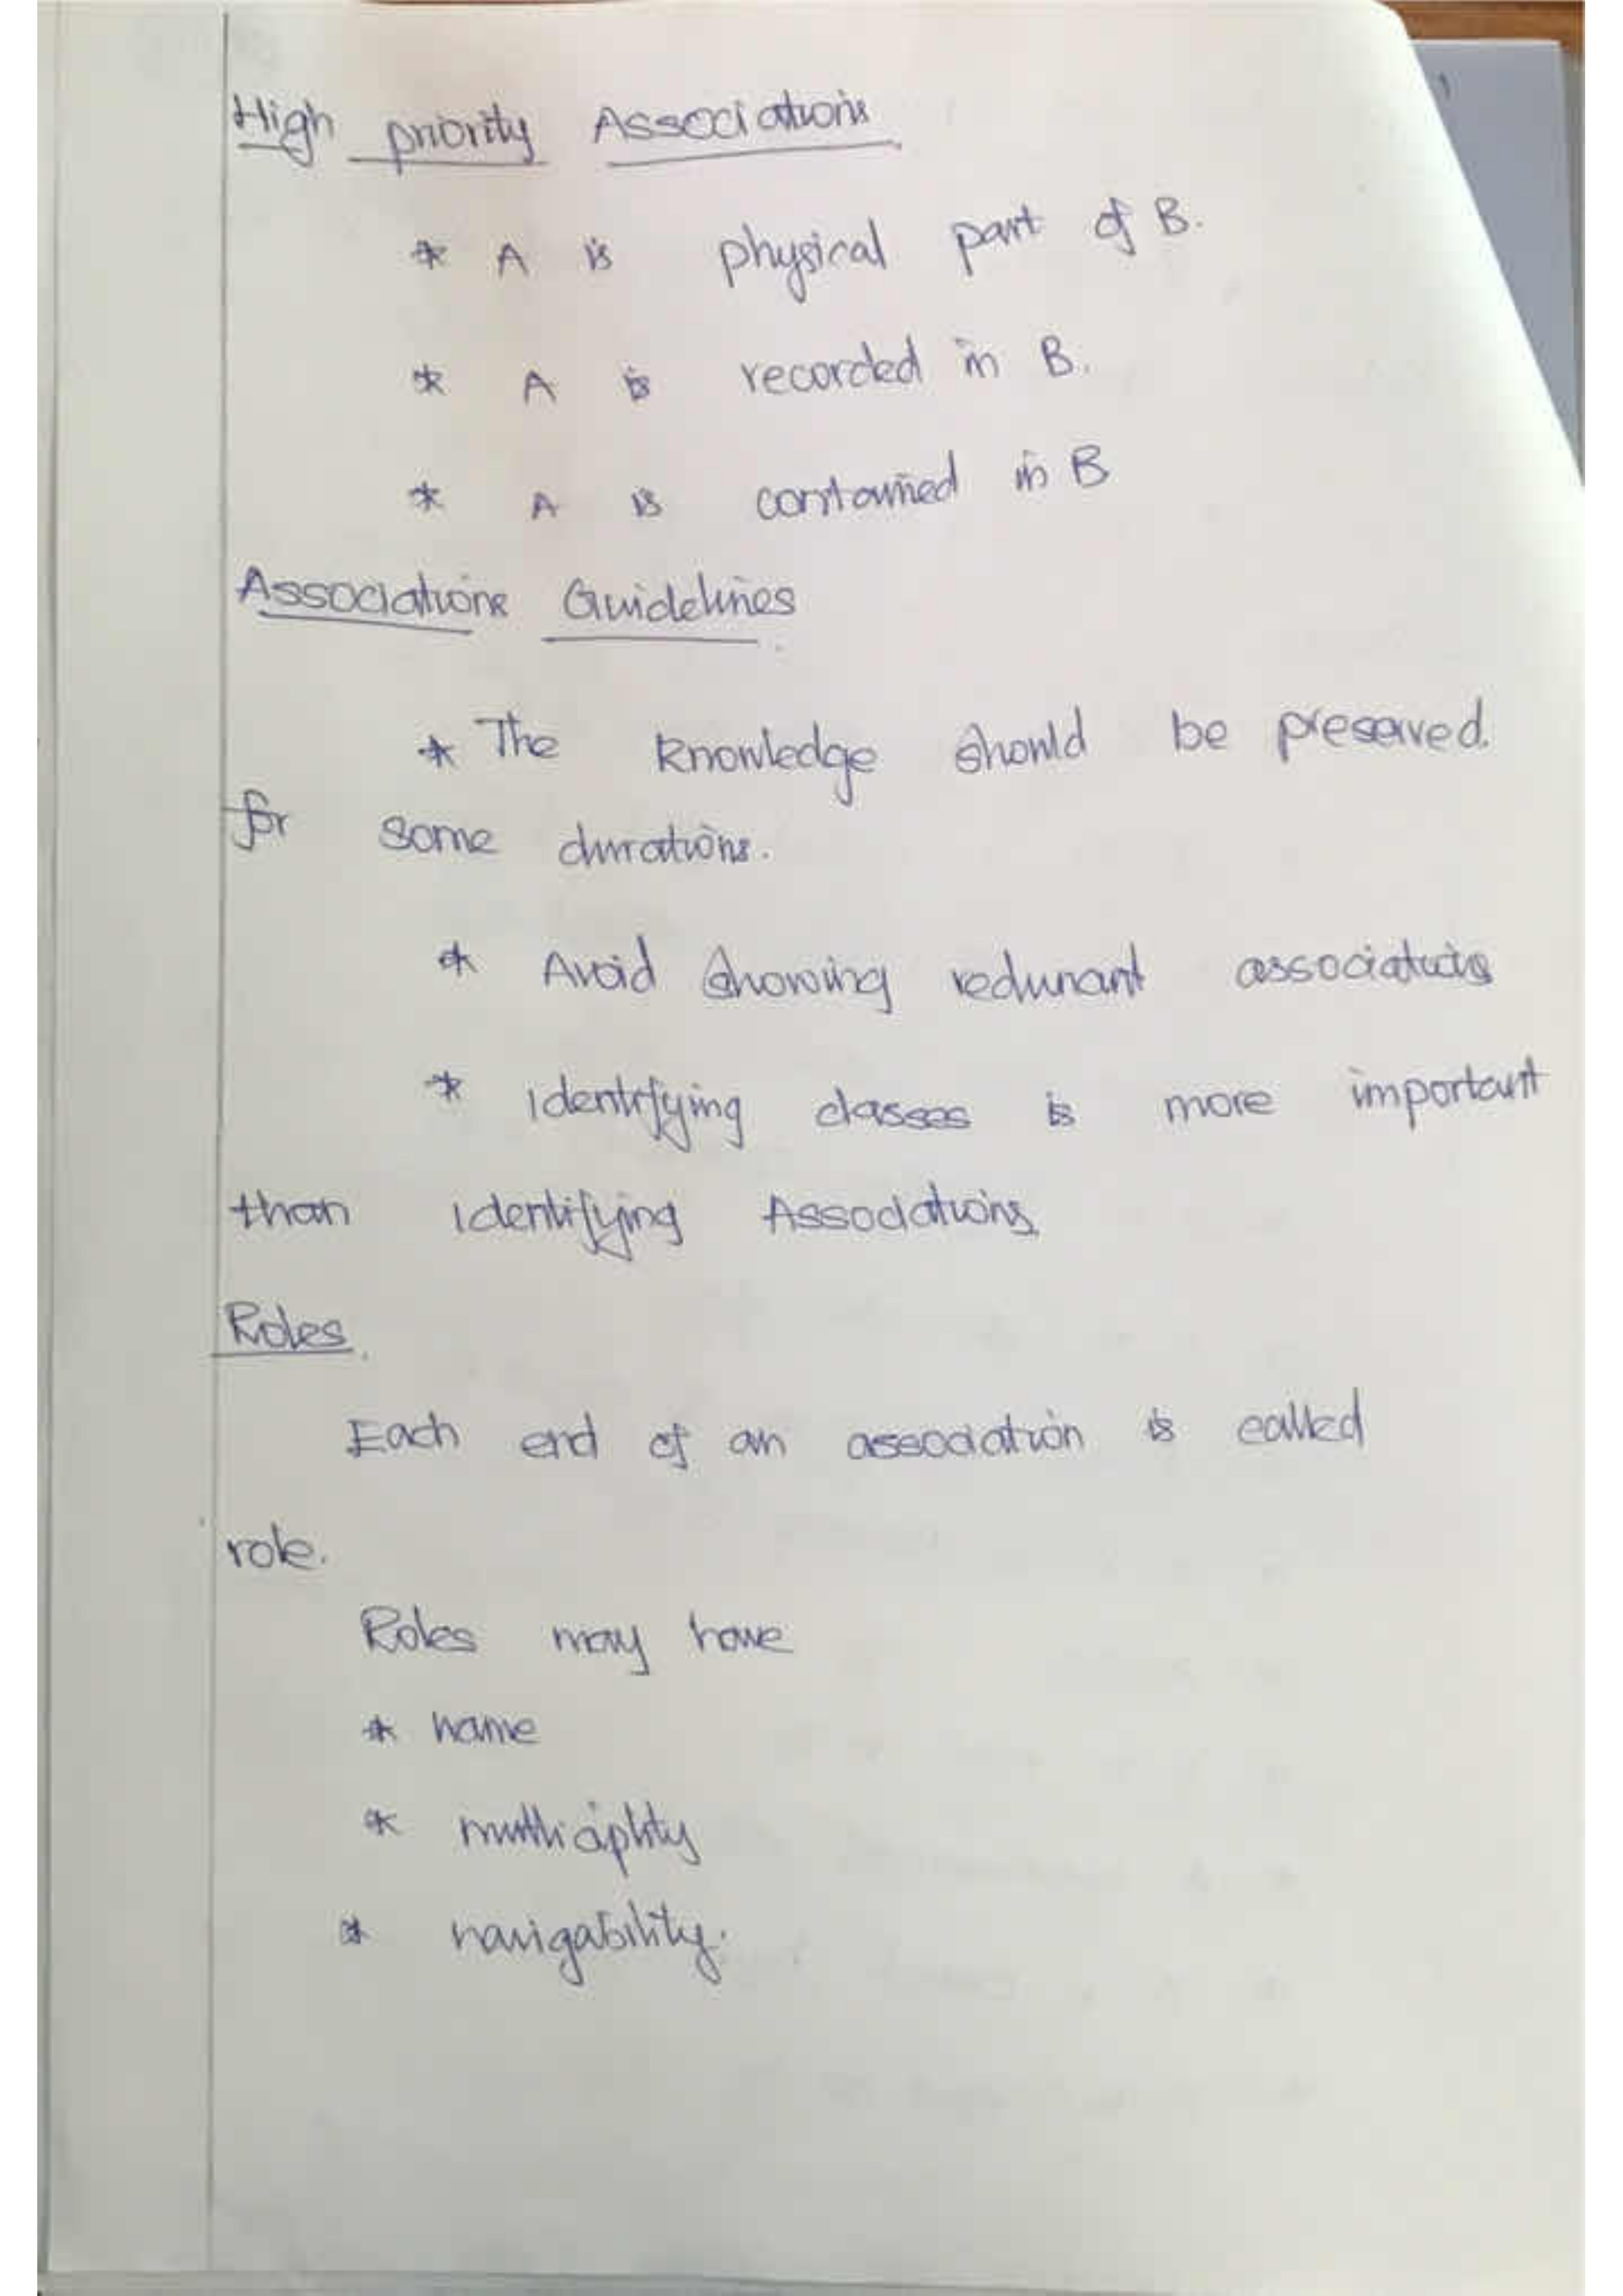 High priority Associations
* A is physical part of B.
* A is recorded in B.
* A is contained in B
Associations Guidelines
* The knowledge should be preserved.
for some durations.
* Avoid showing redunant associations
* Identifying classes is more important
than identifying Associations
Roles.
Each end of an association is called
role.
Roles may have
* name
* multiciplity
* navigability.